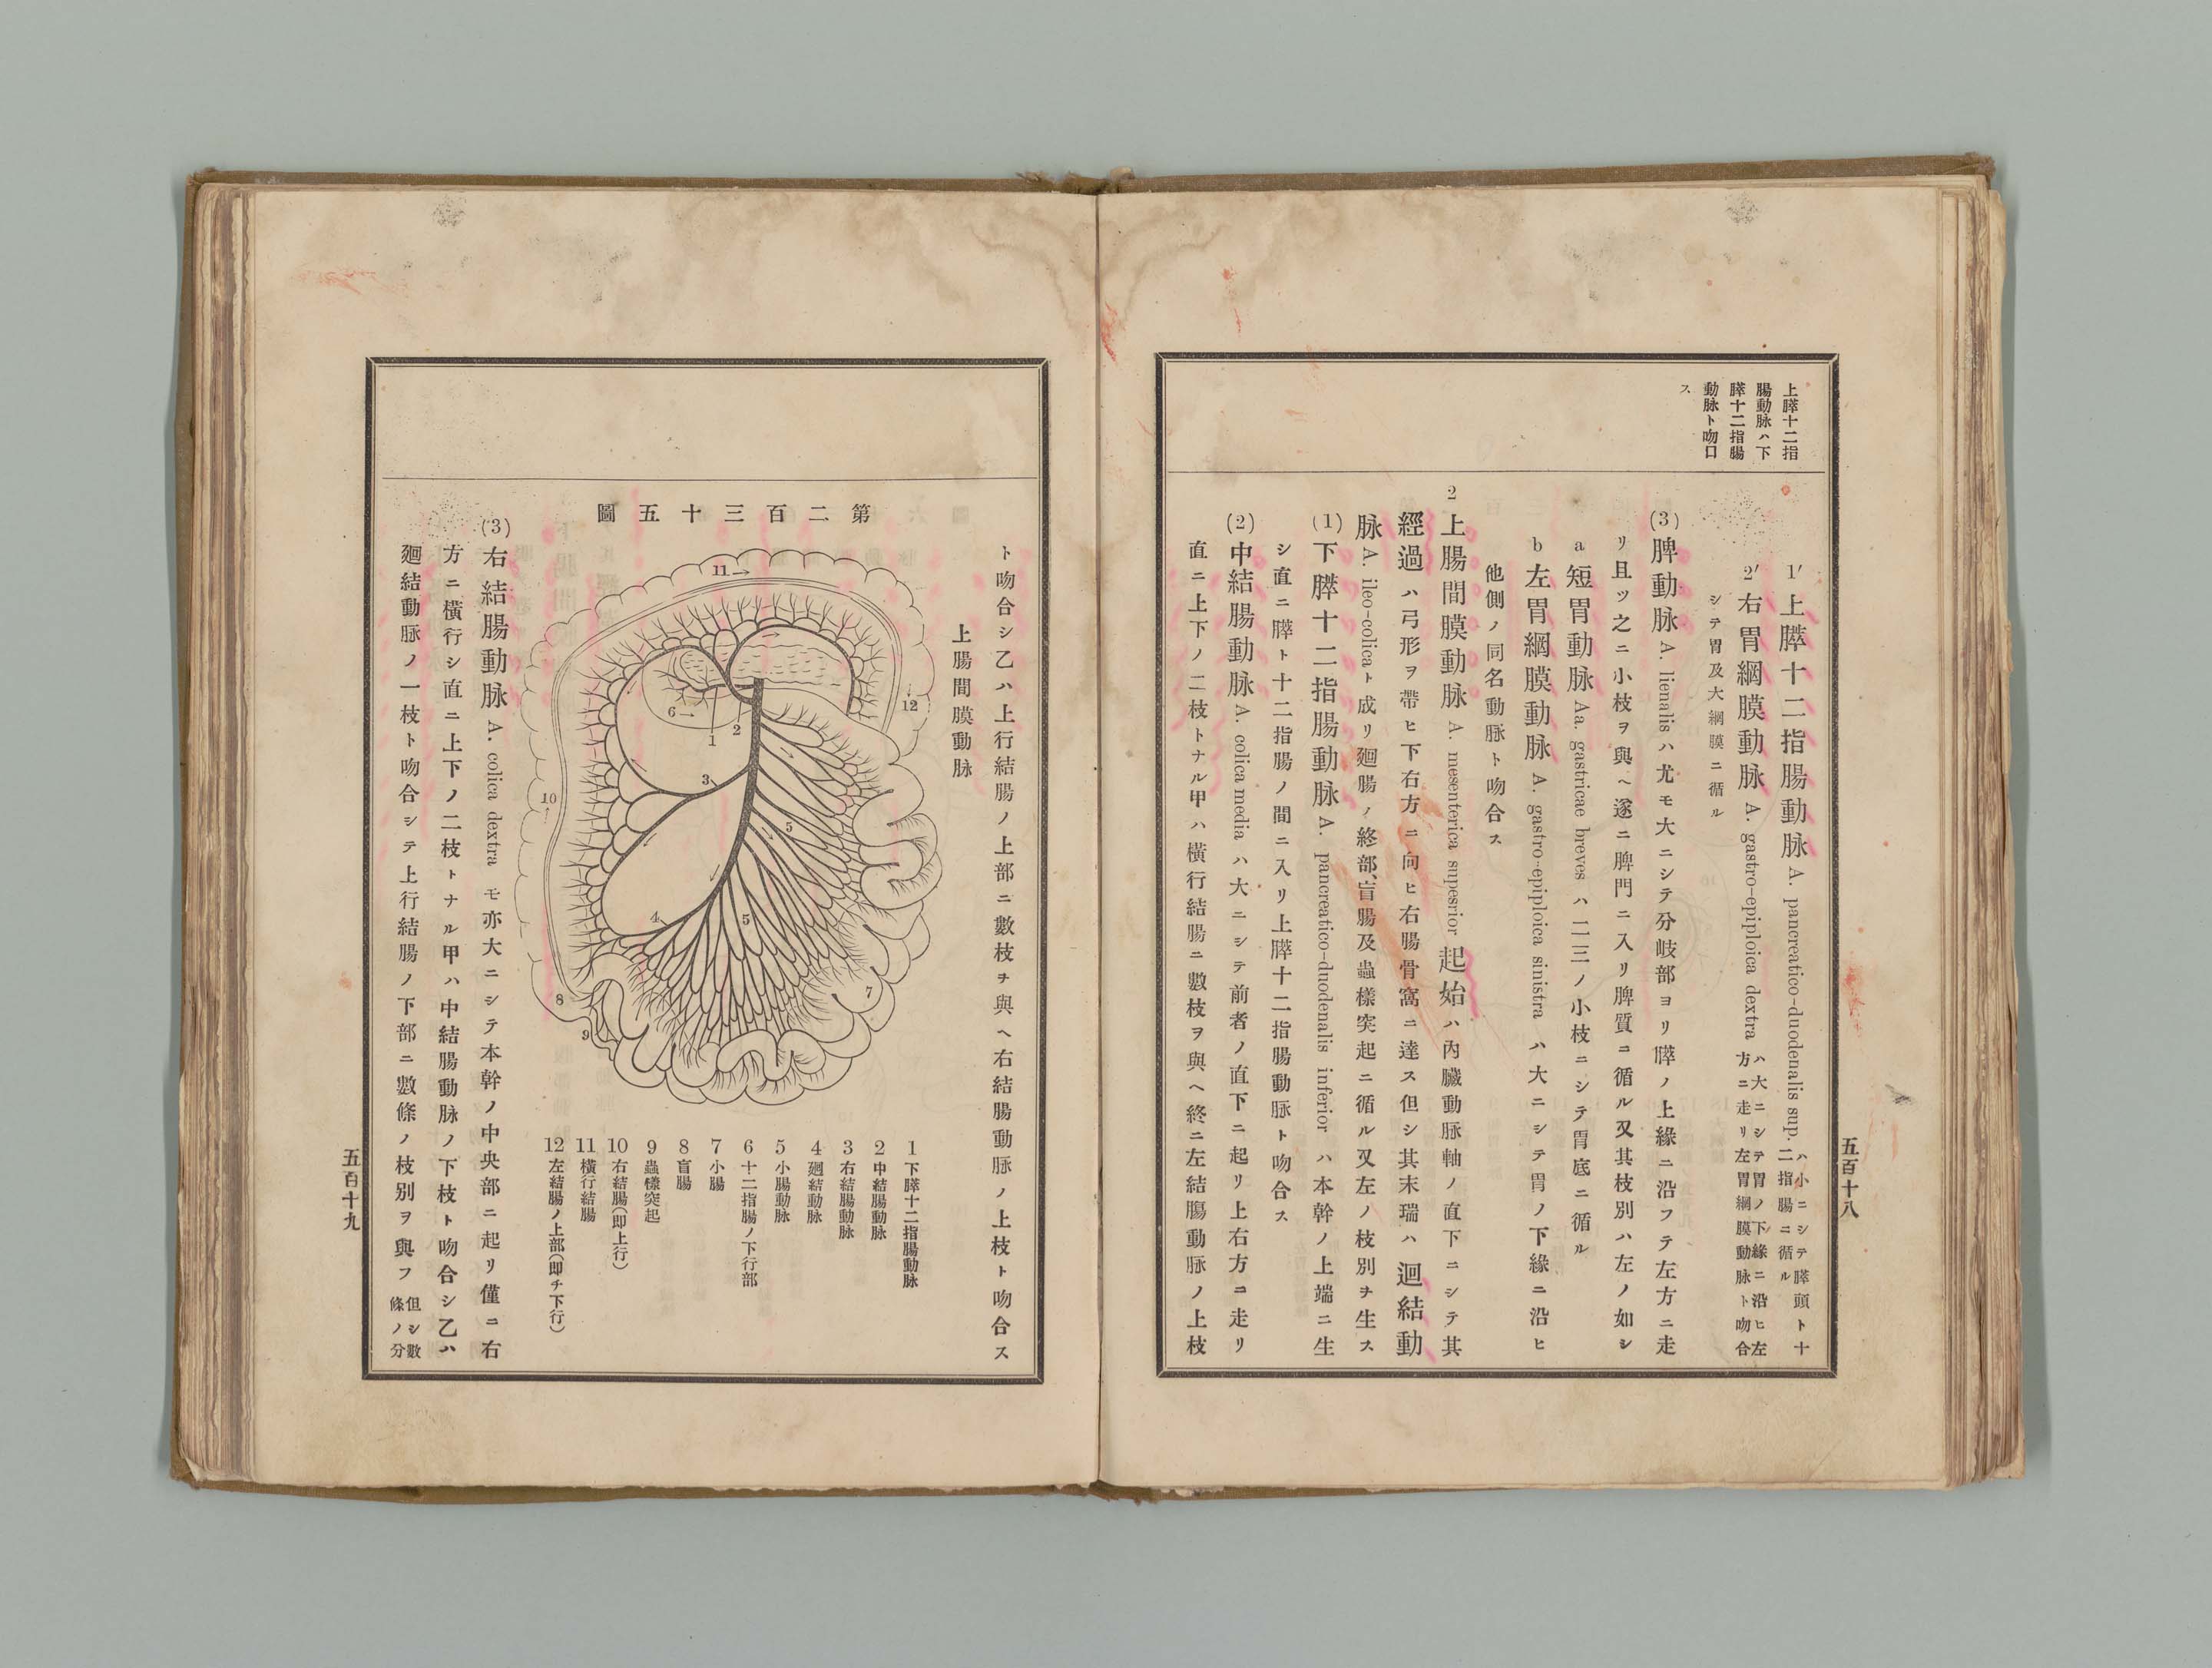 上膵十二指
腸動脉ハ下
膵十二指腸
動脉ト吻口
ス
1′上膵十二指腸動脉 A. pancreatico-duodenalis sup. ハ小ニシテ膵頭ト十
二指腸ニ循ル
2′右胃網膜動脉 A. gastro-epiploica dextra ハ大ニシテ胃ノ下緣ニ沿ヒ左
方ニ走リ左胃網膜動脉ト吻合
シテ胃及大網膜ニ循ル
(3)脾動脉 A. lienalis ハ尤モ大ニシテ分岐部ヨリ膵ノ上緣ニ沿フテ左方ニ走
リ且ツ之ニ小枝ヲ與ヘ遂ニ脾門ニ入リ脾質ニ循ル又其枝別ハ左ノ如シ
a 短胃動脉 Aa. gastricae breves ハ二三ノ小枝ニシテ胃底ニ循ル
b 左胃網膜動脉 A. gastro-epiploica sinistra ハ大ニシテ胃ノ下緣ニ沿ヒ
他側ノ同名動脉ト吻合ス
2 上腸間膜動脉 A. mesenterica supesrior 起始ハ內臟動脉軸ノ直下ニシテ其
經過ハ弓形ヲ帶ヒ下右方ニ向ヒ右腸骨窩ニ達ス但シ其末瑞ハ迴結動
脉 A. ileo-colica ト成リ廻腸ノ終部、盲腸及蟲樣突起ニ循ル又左ノ枝別ヲ生ス
(1)下膵十二指腸動脉 A. pancreatico-duodenalis inferior ハ本幹ノ上端ニ生
シ直ニ膵ト十二指腸ノ間ニ入リ上膵十二指腸動脉ト吻合ス
(2)中結腸動脉 A. colica media ハ大ニシテ前者ノ直下ニ起リ上右方ニ走リ
直ニ上下ノ二枝トナル甲ハ橫行結腸ニ數枝ヲ與ヘ終ニ左結腸動脉ノ上枝
五百十八
ト吻合シ乙ハ上行結腸ノ上部ニ數枝ヲ與ヘ右結腸動脉ノ上枝ト吻合ス
上腸間膜動脉
第二百三十五圖
11
12
6
1
2
3
10
5
5
4
7
8
9
1 下膵十二指腸動脉
2 中結腸動脉
3 右結腸動脉
4 廻結動脉
5 小腸動脉
6 十二指腸ノ下行部
7 小腸
8 盲腸
9 蟲樣突起
10 右結腸(卽上行)
11 橫行結腸
12 左結腸ノ上部(卽チ下行)
(3)右結腸動脉 A. colica dextra モ亦大ニシテ本幹ノ中央部ニ起リ僅ニ右
方ニ橫行シ直ニ上下ノ二枝トナル甲ハ中結腸動脉ノ下枝ト吻合シ乙ハ
廻結動脉ノ一枝ト吻合シテ上行結腸ノ下部ニ數條ノ枝別ヲ與フ 但シ數
條ノ分
五百十九